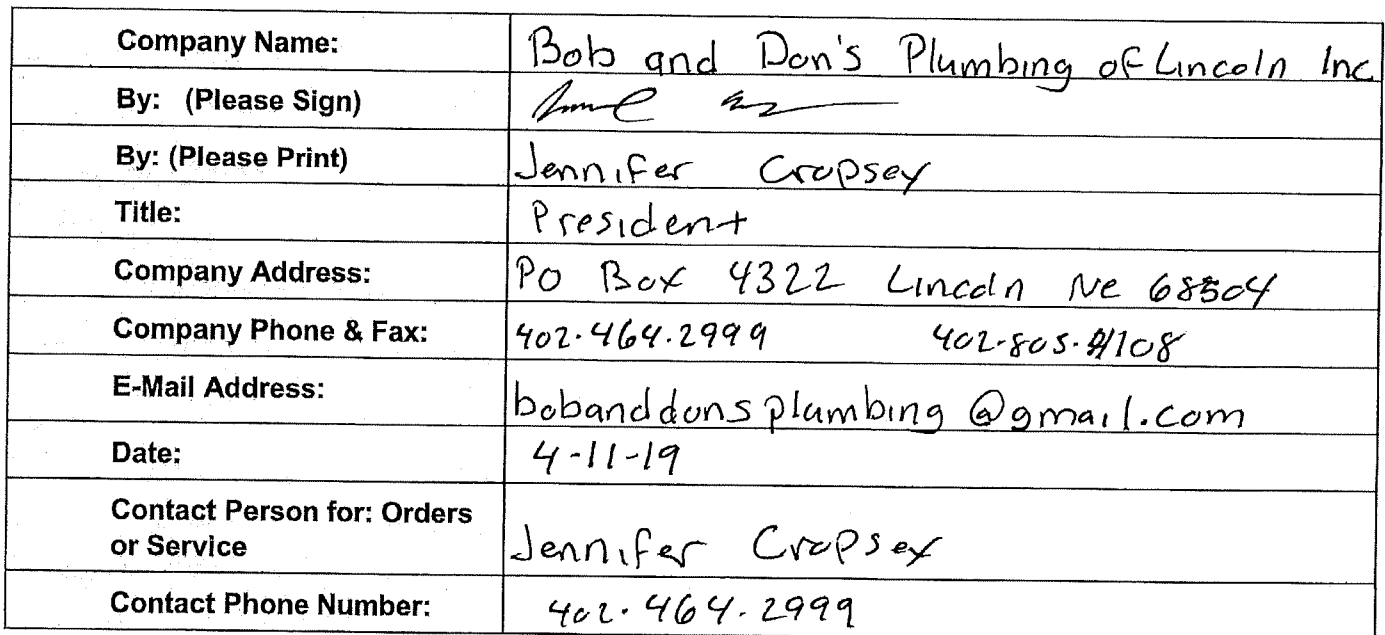 Company Name: Bob and Don's Plumbing of Lincoln Inc
By: (Please Sign)
By: (Please Print) Jennifer Cropsey
Title: President
Company Address: PO Box 4322 Lincoln Ne 68504
Company Phone & Fax: 402.464.2999 402-805-9108
E-Mail Address: bobanddonsplumbing@gmail.com
Date: 4-11-19
Contact Person for: Orders
or Service Jennifer Cropsey
Contact Phone Number: 402.464.2999